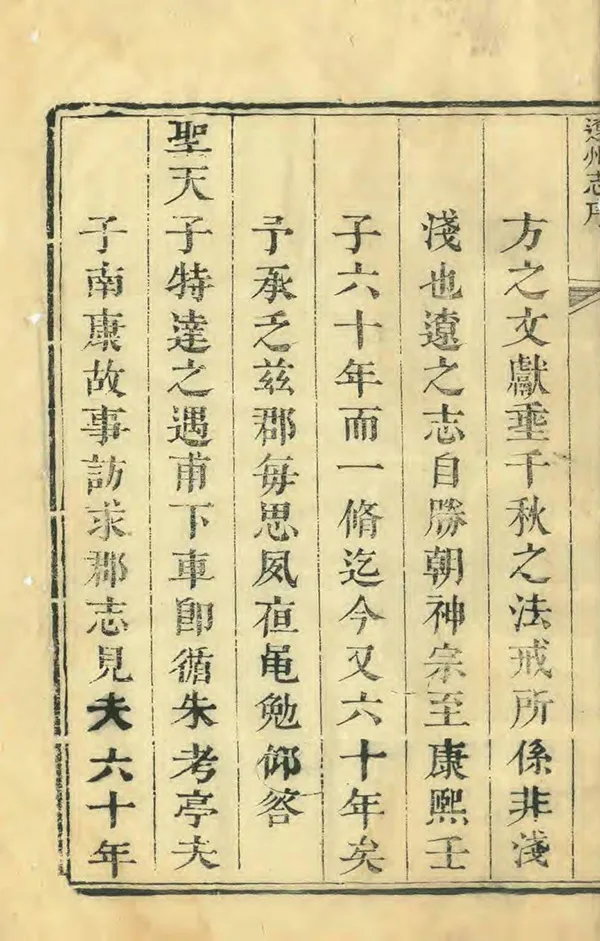 遼州志序
方之文獻垂千秋之法戒所係非淺
淺也遼之志自勝朝神宗至康熙壬
子六十年而一脩迄今又六十年矣
予承乏兹郡每思夙夜黽勉仰答
聖天子特達之遇甫下車卽循朱考亭夫
子南康故事訪求郡志見夫六十年